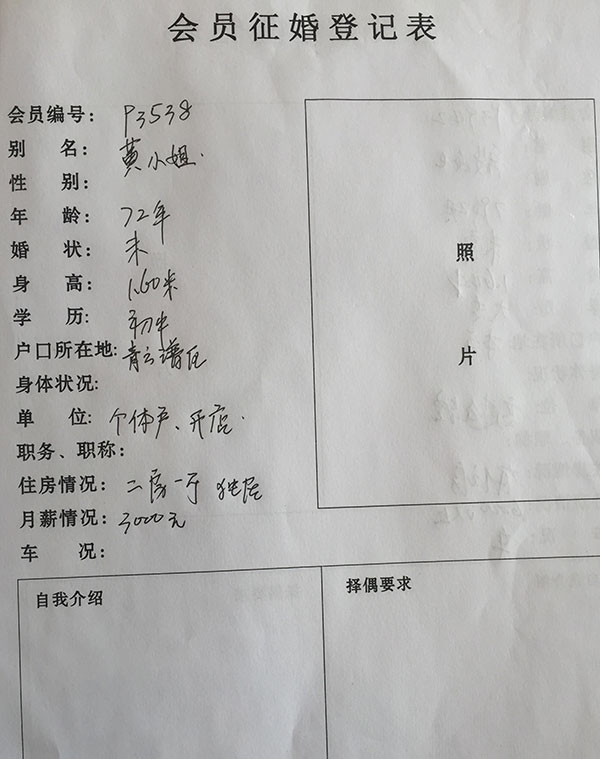 会员征婚登记表
会员编号: P3538
别 名: 黄小姐.
性 别:
年 龄: 72年
婚 状: 未
身 高: 1.60米
学 历: 初中
户口所在地: 青云谱区
身体状况:
单 位: 个体户、开店.
职务、职称:
住房情况: 二房一厅 独居
月薪情况: 3000元
车 况:
照
片
自我介绍
择偶要求